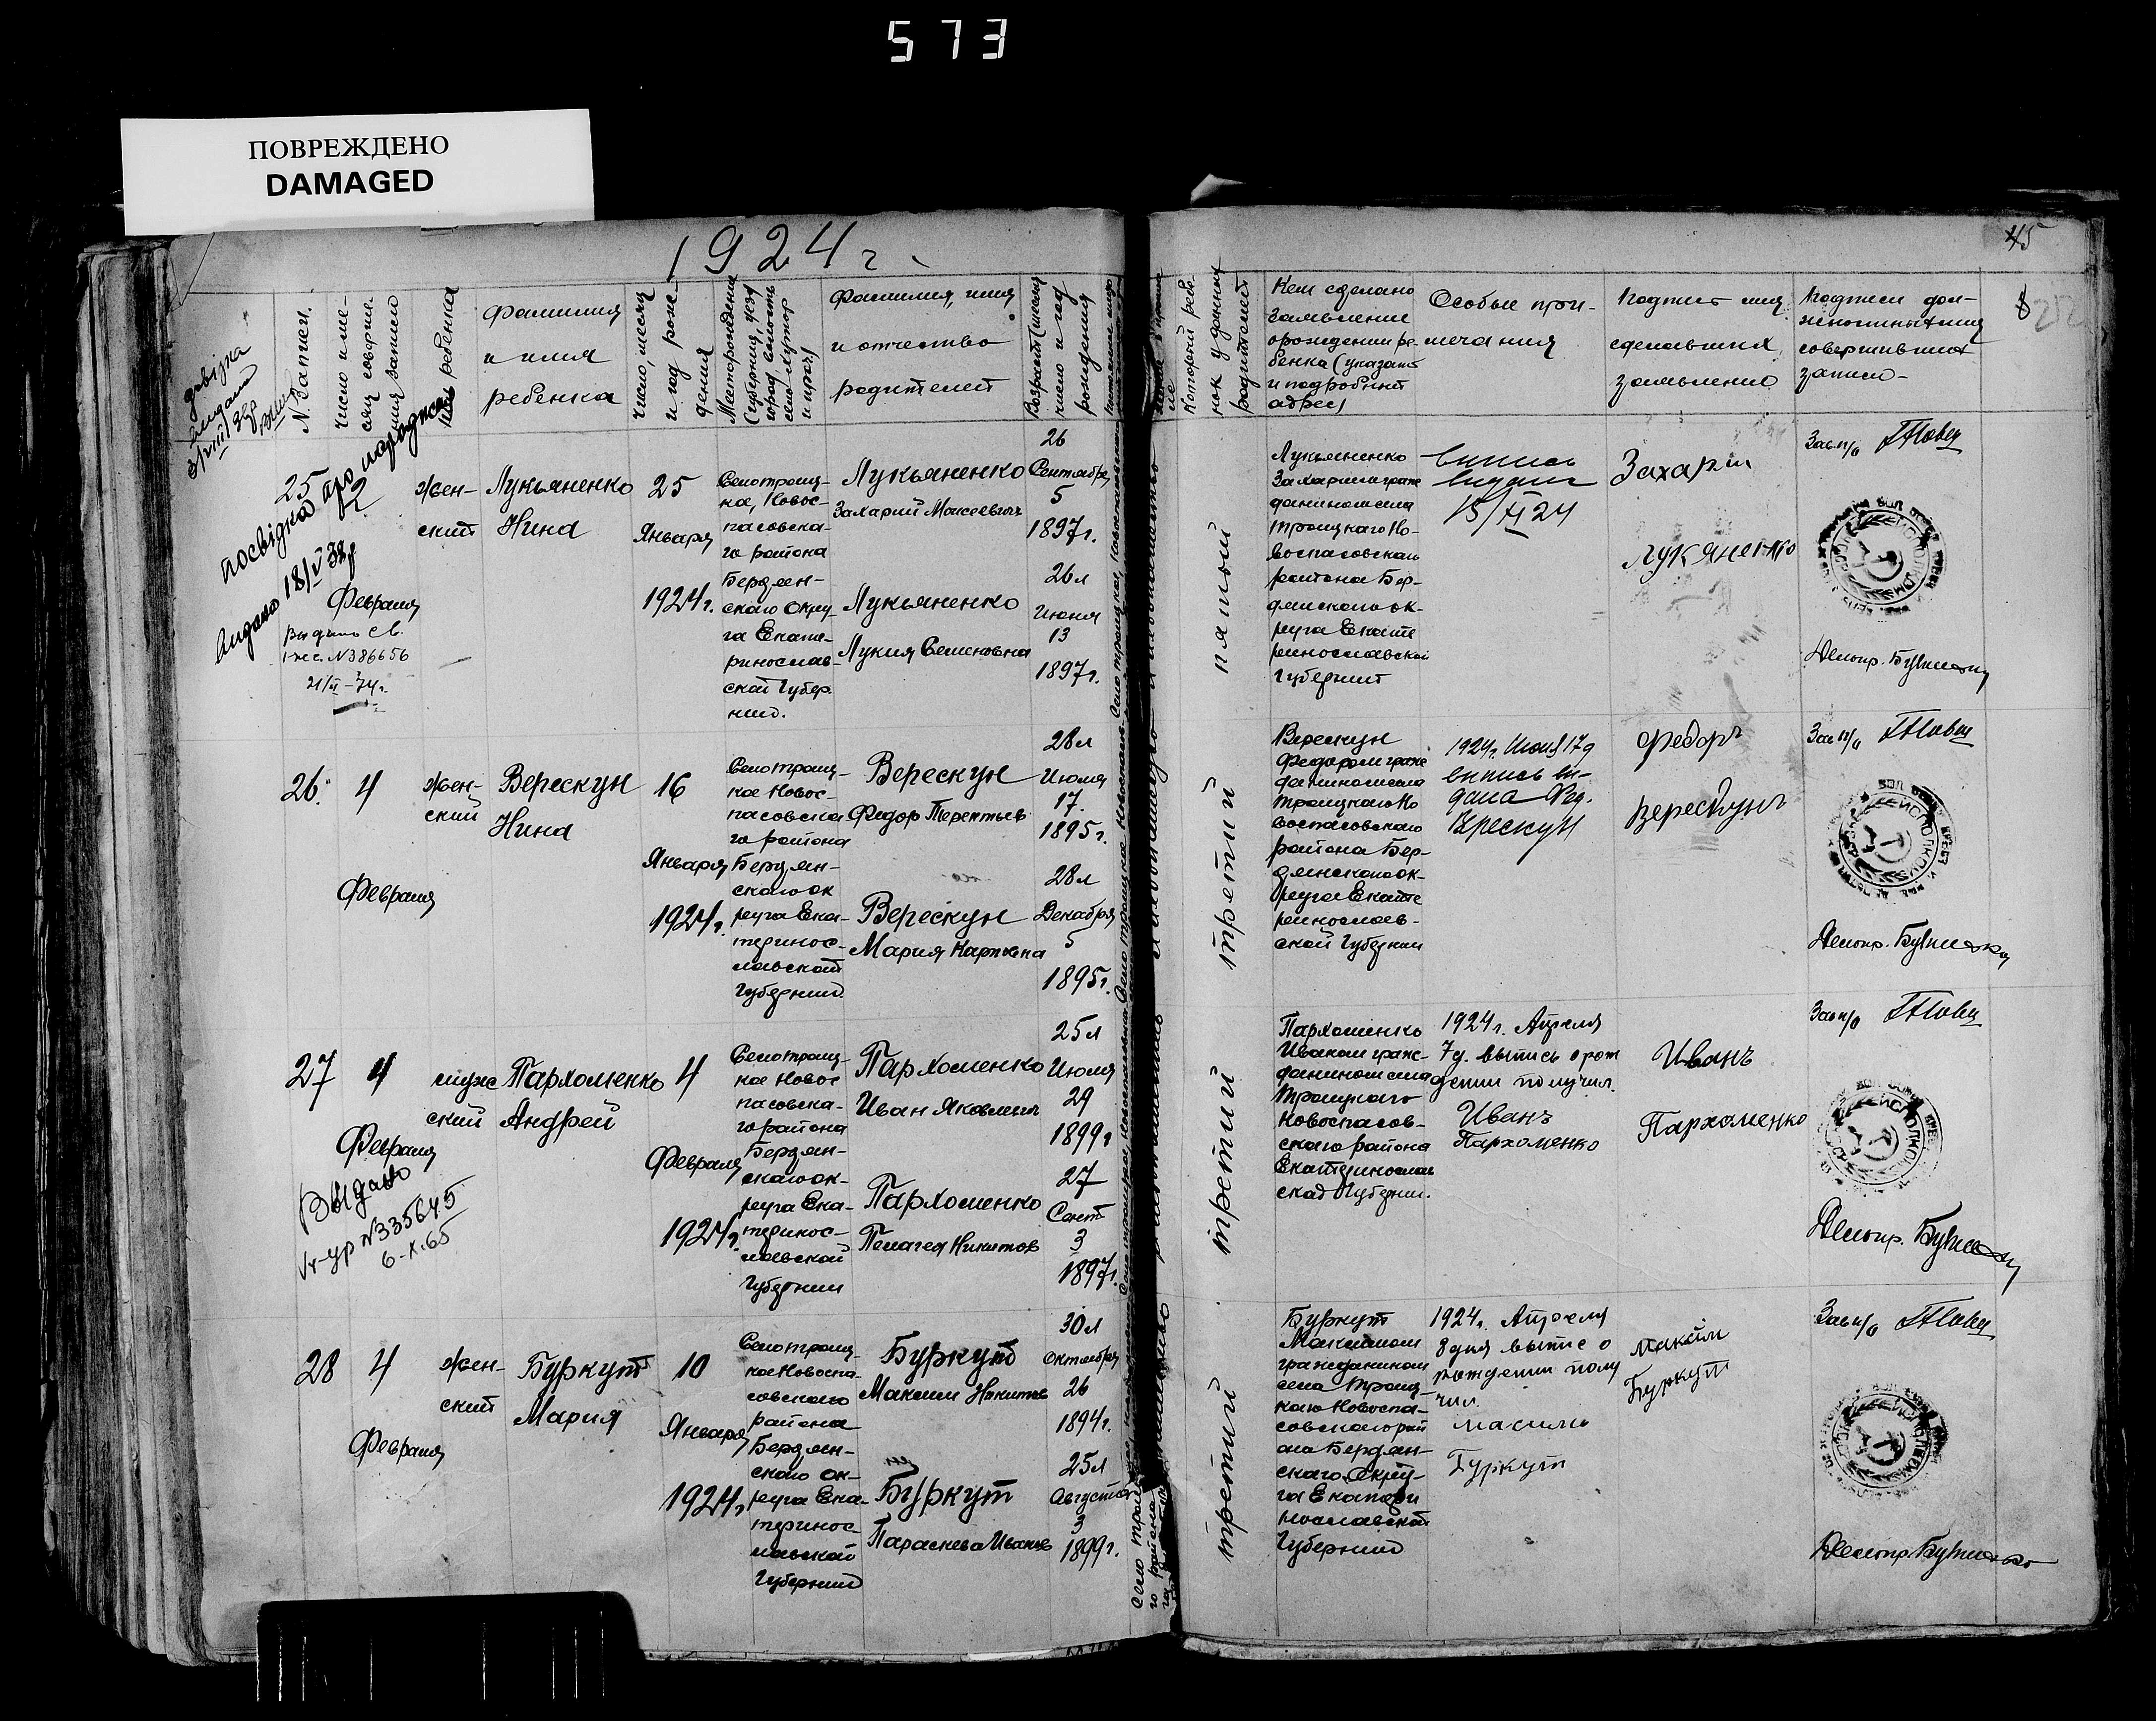 573
ПОВРЕЖДЕНО
DAMAGED
1924 г.
45
N. Записи.
Число и ме-
сяц соверше-
ния записи
Пол ребенка
Фамилия
и имя
ребенка
Число, месяц
и год рож-
дения
Месторождение
(Губерния, уезд
город, волость
село хутор
и проч)
Фамилия, имя
и отчество
родителей
Возраст (месяц
число и год
рождения
Который ребе-
нок у данных
родителей
Кем сделано
заявление
о рождении ре-
бенка (указать
и подробный
адрес)
Особые при-
мечания
Подпись лиц
сделавших
заявление
Подписи дол-
жностных лиц
совершивших
запись
посвідка про народжен
Видано 18/V 38р
25
2
Февраля
Выдано св.
N386656
21/II-74г.
жен-
ский
Лукьяненко
Нина
25
Января
1924г.
Село Троиц-
кое, Новос-
пасовска-
го района
Бердян-
ского Окру-
га Екате-
ринослав-
ской Губер-
нии.
Лукьяненко
Захарий Моисеевич
Лукьяненко
Лукия Семеновна
26
Сентября
5
1897г.
26л
Июня
13
1897г.
пятый
Лукьяненко
Захарием граж
данином села
Троицкаго Но-
воспасовскаго
района Бер-
дянского ок-
руга Екате
ринославской
Губернии
выпись
выдана
15/XI 24
Захарий
Лукяненко
Зав. п/о
Делопр.
26.
4
Февраля
жен-
ский
Верескун
Нина
16
Января
1924г.
Село Троиц-
кое Новос-
пасовска
го района
Бердян-
ского ок
руга Ека-
теринос-
лавской
Губернии
Верескун
Федор Терентьев
Верескун
Мария Карповна
28л
Июля
17.
1895г.
28л
Декабря
5
1895г.
третий
Верескун
Федором граж
данином села
Троицкаго Но
воспасовскаго
района Бер-
дянского ок-
руга Екате
ринослав-
ской Губернии
1924г. Июля 17д
выпись вы-
дана Фед.
Верескун
Федоръ
Верескунъ
Зав п/о
Делопр.
27
4
Февраля
Выдано
N335645
6-X.65
мужс
ский
Пархоменко
Андрей
4
Февраля
1924г.
Село Троиц-
кое Новос
пасовска-
го района
Бердян-
ского ок-
руга Ека-
теринос-
лавской
Губернии
Пархоменко
Иван Яковлевич
Пархоменко
Пелагея Никитов
25л
Июля
29
1899г
27
Сент
3
1897г.
третий
Пархоменко
Иваном граж-
данином села
Троицкаго
Новоспасов-
скаго района
Екатеринослав
ской Губернии.
1924г. Апреля
7д. выпись о рож
дении получил.
Иванъ
Пархоменко
Иванъ
Пархоменко
Зав п/о
Делопр.
28
4
Февраля
жен-
ский
Буркут
Мария
10
Января
1924г.
Село Троиц-
кое Новоспа-
совскаго
района
Бердян-
ского ок-
руга Ека-
теринос-
лавской
Губернии
Буркут
Максим Никитов
Буркут
Параскева Иванов
30л
Октября
26
1894г.
25л
Августа
3
1899г.
третий
Буркут
Максимом
гражданином
села Троиц-
каго Новоспа-
совскаго рай
она Бердян-
ского Окру-
га Екатери
нославской
Губернии
1924г. Апреля
8 дня выпис о
рождении полу
чил.
Буркут
Максім
Буркут
Зав п/о
Делопр.